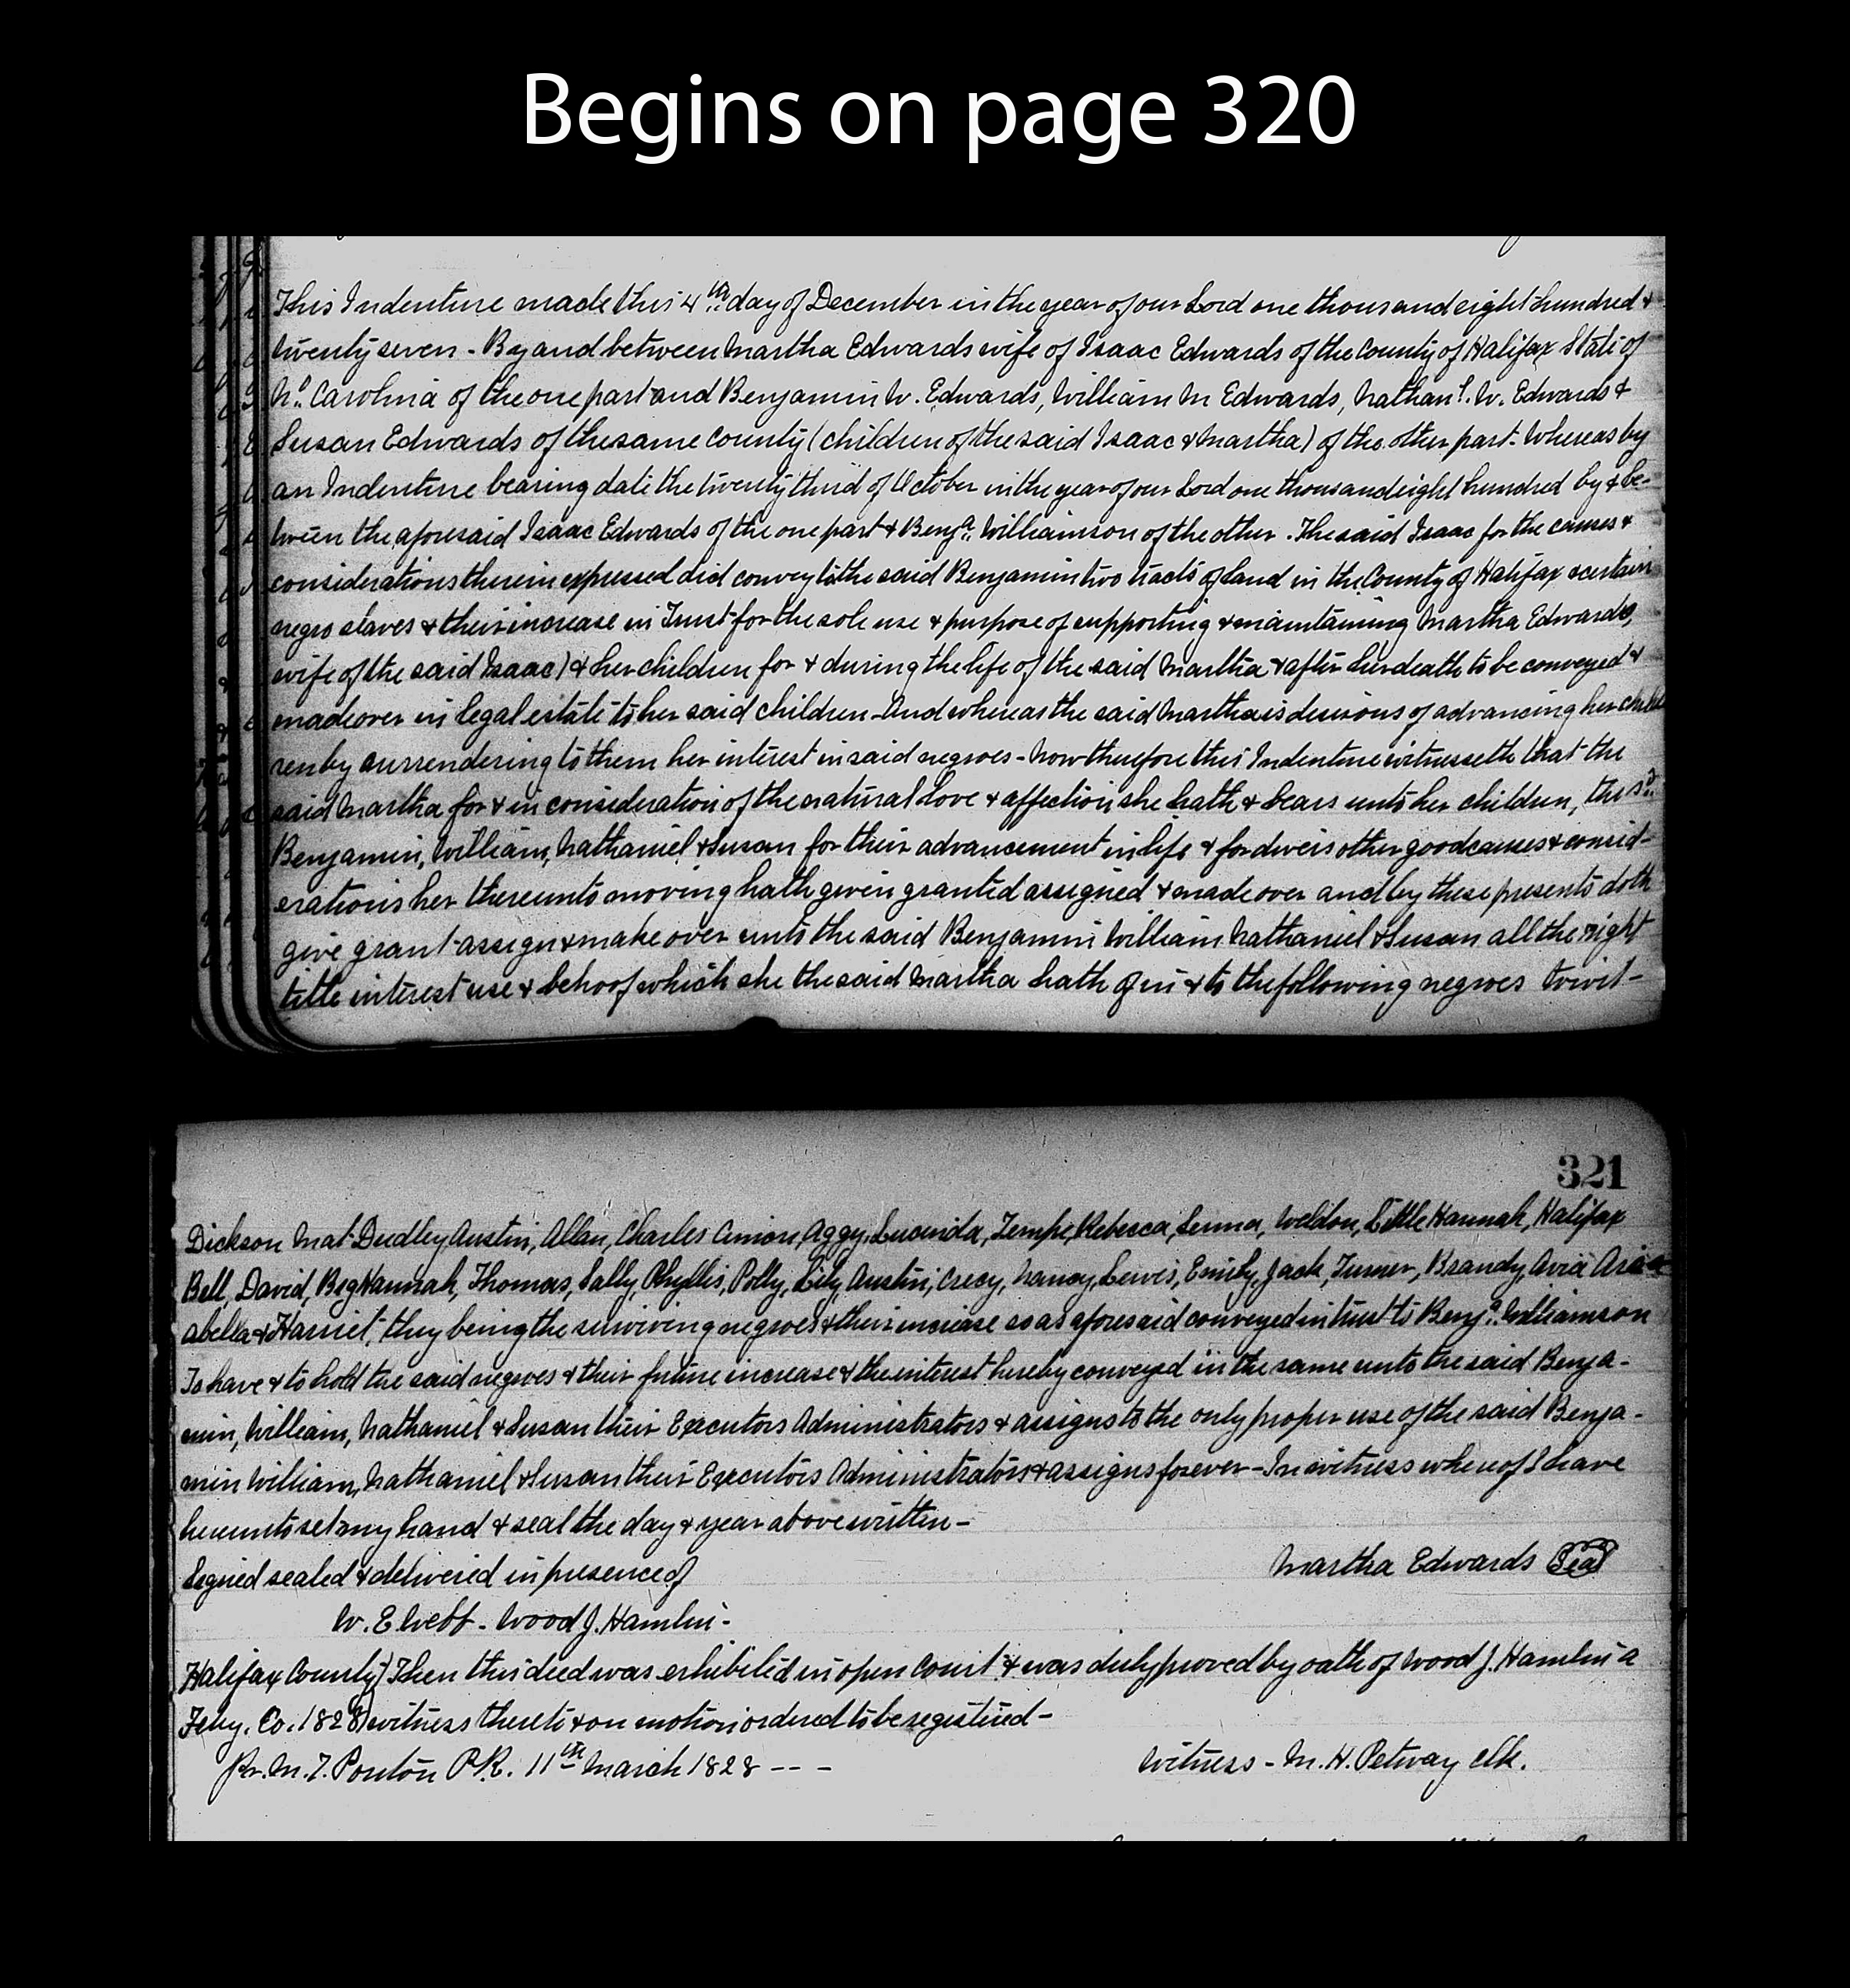 Begins on page 320
This Indenture made this 4th day of December in the year of our Lord one thousand eight hundred &
twenty seven - By and between Martha Edwards wife of Isaac Edwards of the County of Halifax State of
No. Carolina of the one part and Benjamin W. Edwards, William M Edwards, Nathanl. W. Edwards &
Susan Edwards of the same County (children of the said Isaac & Martha) of the other part. Whereas by
an Indenture bearing date the twenty third of October in the year of our Lord one thousand eight hundred by & be-
tween the aforesaid Isaac Edwards of the one part & Benja. Williamson of the other. The said Isaac for the causes &
considerations therein expressed did convey to the said Benjamin two tracts of land in the County of Halifax & certain
negro slaves & their increase in Trust for the sole use & purpose of supporting & maintaining Martha Edwards,
wife of the said Isaac) & her children for & during the life of the said Martha & after her death to be conveyed &
made over in legal estate to her said children - And whereas the said Martha is desirous of advancing her child
ren by surrendering to them her interest in said negroes - Now therefore this Indenture witnesseth that the
said Martha for & in consideration of the natural love & affection she hath & bears unto her children, the sd.
Benjamin, William, Nathaniel & Susan for their advancement in life & for divers other good causes & consid-
erations her thereunto moving hath given granted assigned & made over and by these presents doth
give grant assign & make over unto the said Benjamin William Nathaniel & Susan all the right
title interest use & behoof which she the said Martha hath of in & to the following negroes towit -
321
Dickson Mat Dudley, Austin, Allan, Charles Amion, Aggy, Lucinda, Tempe, Rebecca, Senna, Weldon, Little Hannah, Halifax
Bell, David, Big Hannah, Thomas, Sally, Phyllis, Polly, Lily, Austin, Crecy, Nancy, Lewis, Emily, Jack, Turner, Brandy, Avia
abella & Harriet, they being the surviving negroes & their increase so as aforesaid conveyed in trust to Benja. Williamson
To have & to hold the said negroes & their future increase & the interest hereby conveyed in the same unto the said Benja-
min, William, Nathaniel & Susan their Executors Administrators & assigns to the only proper use of the said Benja-
min William, Nathaniel & Susan their Executors Administrators & assigns forever - In witness whereof I have
hereunto set my hand & seal the day & year above written -
Signed sealed & delivered in presence of
Martha Edwards Seal
W. E. Webb - Wood J. Hamlin -
Halifax County) Then this deed was exhibited in open Court & was duly proved by oath of Wood J. Hamlin a
Feby. Co. 1828) witness thereto & on motion ordered to be registered -
Pr. M. T. Ponton P.R. 11th March 1828 - - -
Witness - M. H. Petway Clk.